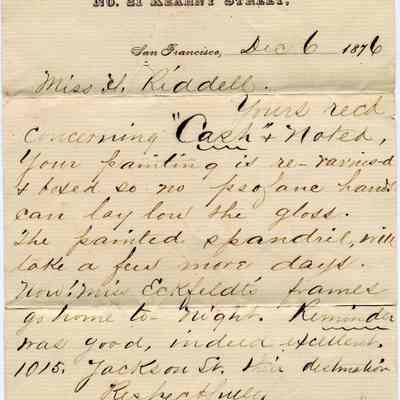 NO. 21 KEARNY STREET.
San Francisco, Dec 6 1876
Miss H. Riddell.
Yours recd
concerning "Cash" & Noted,
Your painting is re-varnis-d
& boxed so no profane hands
can lay low the gloss.
The painted spandril, will
take a few more days.
Now! Miss Eckfeldt's frames
go home to-night. Reminder
was good, indeed excellent.
1015. Jackson St. their destination
Respectfully